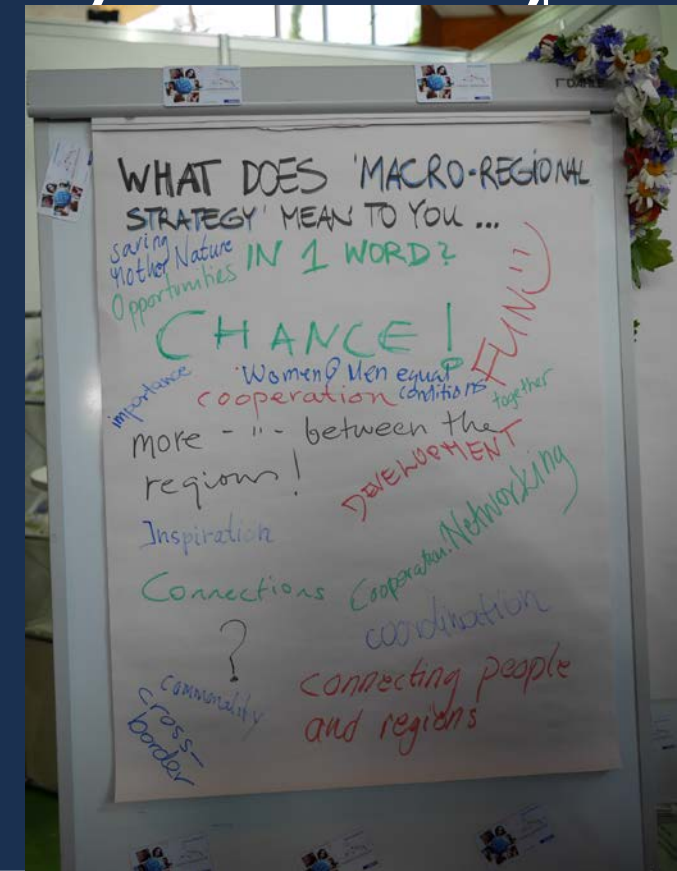 WHAT DOES 'MACRO-REGIONAL
STRATEGY' MEAN TO YOU ...
IN 1 WORD?
saving
Mother Nature
Opportunities
CHANCE!
FUN
importance
Women & Men equal
conditions
cooperation
together
more -"- between the
regions!
DEVELOPMENT
Inspiration
Networking
Cooperation
Connections
coordination
?
commonality
connecting people
and regions
cross-
border